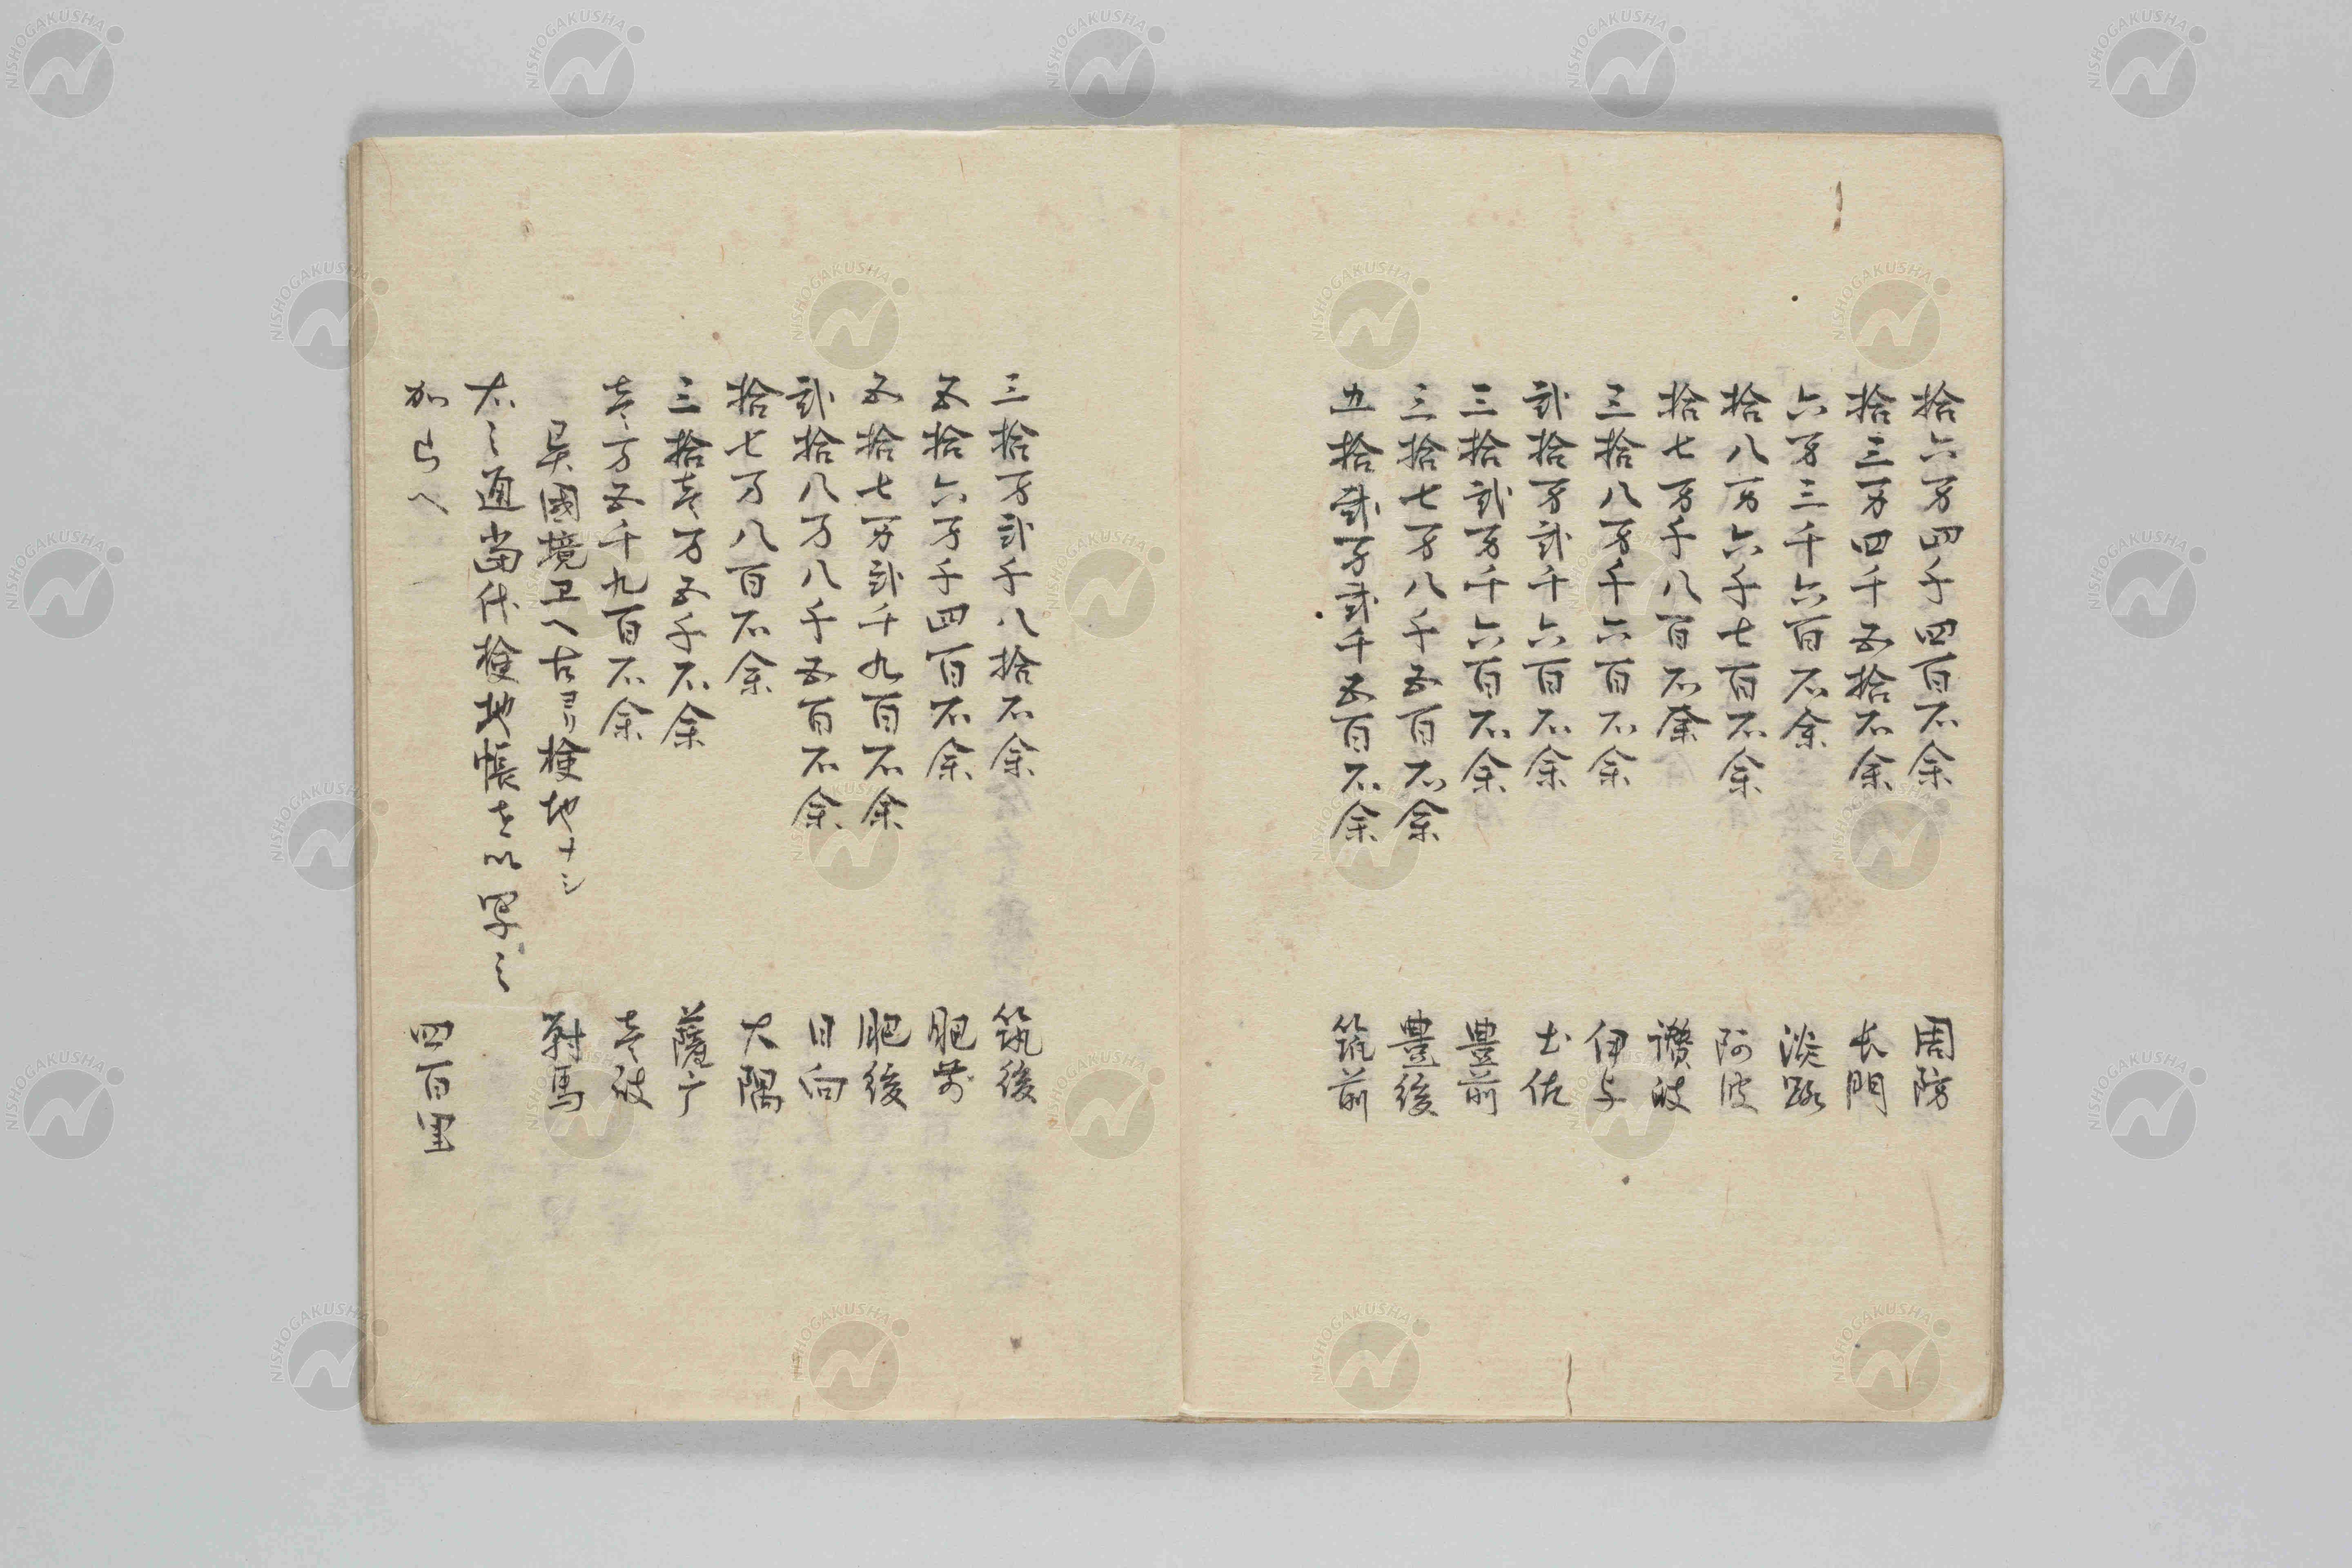 拾六万四千四百石余　周防
拾三万四千五拾石余　長門
六万三千六百石余　淡路
拾八万六千七百石余　阿波
拾七万千八百石余　讃岐
三拾八万千六百石余　伊与
弐拾万弐千六百石余　土佐
三拾弐万千六百石余　豊前
三拾七万八千五百石余　豊後
五拾弐万弐千五百石余　筑前
三拾万弐千八拾石余　筑後
五拾六万千四百石余　肥前
五拾七万弐千九百石余　肥後
弐拾八万八千五百石余　日向
拾七万八百石余　大隅
三拾壱万五千石余　薩广
壱万五千九百石余　壱岐
異國境卫ヘ古ヨリ検地ナシ　對馬
右之通当代検地帳を以写之
加らへ　四百里
NISHOGAKUSHA